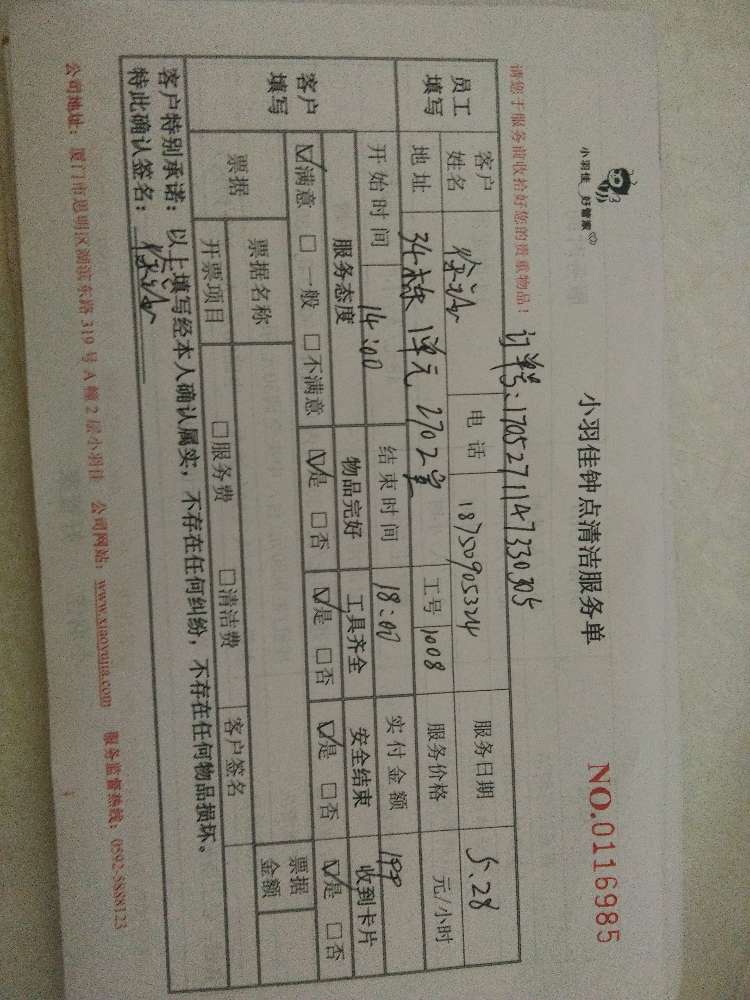 小羽佳 好管家
小羽佳钟点清洁服务单
NO.0116985
请您于服务前收拾好您的贵重物品！
订单号：1705271147330305
员工填写
客户姓名 电话 18750905324 服务日期 5.28
地址 34栋 1单元 2702室 工号 1008 服务价格 元/小时
客户填写
开始时间 14:00 结束时间 18:00 实付金额 199
服务态度 物品完好 工具齐全 安全结束 收到卡片
☑满意 □一般 □不满意 ☑是 □否 ☑是 □否 ☑是 □否 ☑是 □否
票据 票据名称 票据金额
开票项目 □服务费 □清洁费 客户签名
客户特别承诺：以上填写经本人确认属实，不存在任何纠纷，不存在任何物品损坏。
特此确认签名：
公司地址：厦门市思明区湖滨东路319号A幢2层小羽佳 公司网站：www.xiaoyujia.com 服务监督热线：0592-5888123